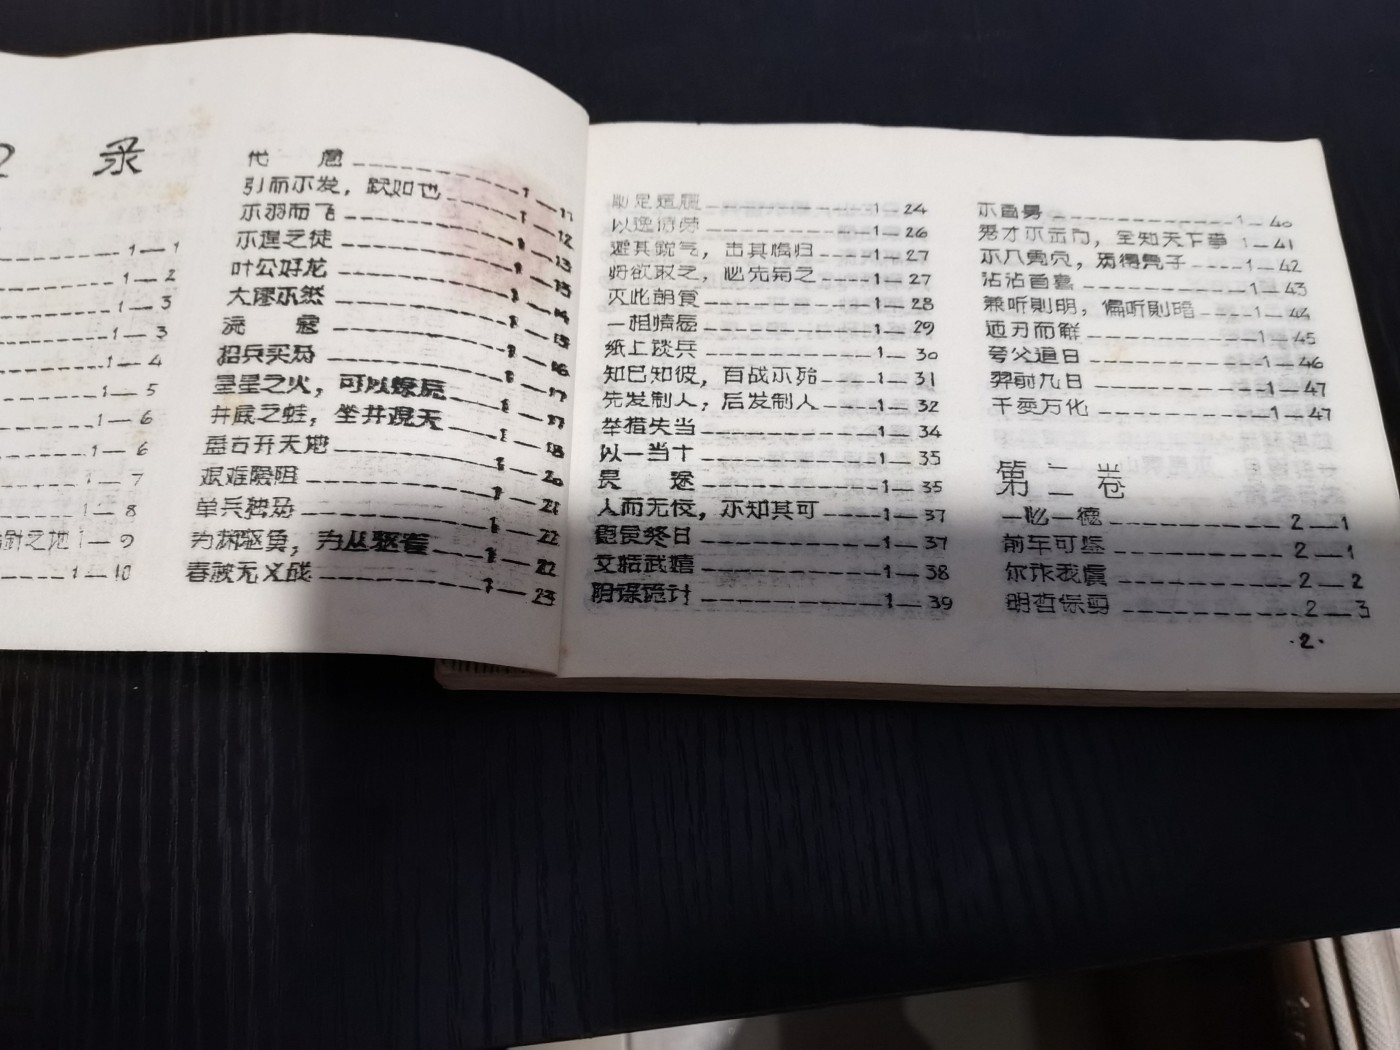 录
1—1
1—2
1—3
1—3
1—4
1—5
1—6
1—6
1—7
1—8
针之地 1—9
1—10
1—11
引而不发，跃如也 1—12
不羽而飞 1—13
不逞之徒 1—13
叶公好龙 1—14
大谬不然 1—15
流寇 1—16
招兵买马 1—17
星星之火，可以燎原 1—17
井底之蛙，坐井观天 1—18
盘古开天地 1—20
艰难险阻 1—21
单兵独马 1—22
为渊驱鱼，为丛驱雀 1—22
春秋无义战 1—23
削足适履 1—24
以逸待劳 1—26
避其锐气，击其惰归 1—27
将欲取之，必先与之 1—27
灭此朝食 1—28
一相情愿 1—29
纸上谈兵 1—30
知已知彼，百战不殆 1—31
先发制人，后发制人 1—32
举措失当 1—34
以一当十 1—35
畏途 1—35
人而无信，不知其可 1—37
饱食终日 1—37
文恬武嬉 1—38
阴谋诡计 1—39
1—40
秀才不出门，全知天下事 1—41
不入虎穴，焉得虎子 1—42
沾沾自喜 1—43
兼听则明，偏听则暗 1—44
迎刃而解 1—45
夸父追日 1—46
羿射九日 1—47
千变万化 1—47
第二卷
一心一德 2—1
前车可鉴 2—1
尔诈我虞 2—2
明哲保身 2—3
·2·